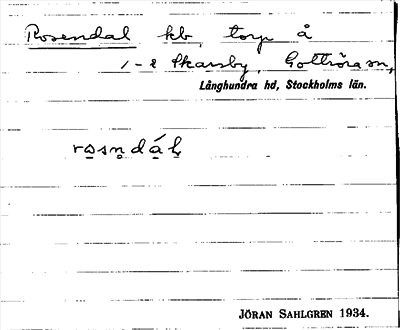 Rosendal kb, torp å
1-2 Skarsby, Gottröra sn,
Långhundra hd, Stockholms län.
rosndál
JÖRAN SAHLGREN 1934.